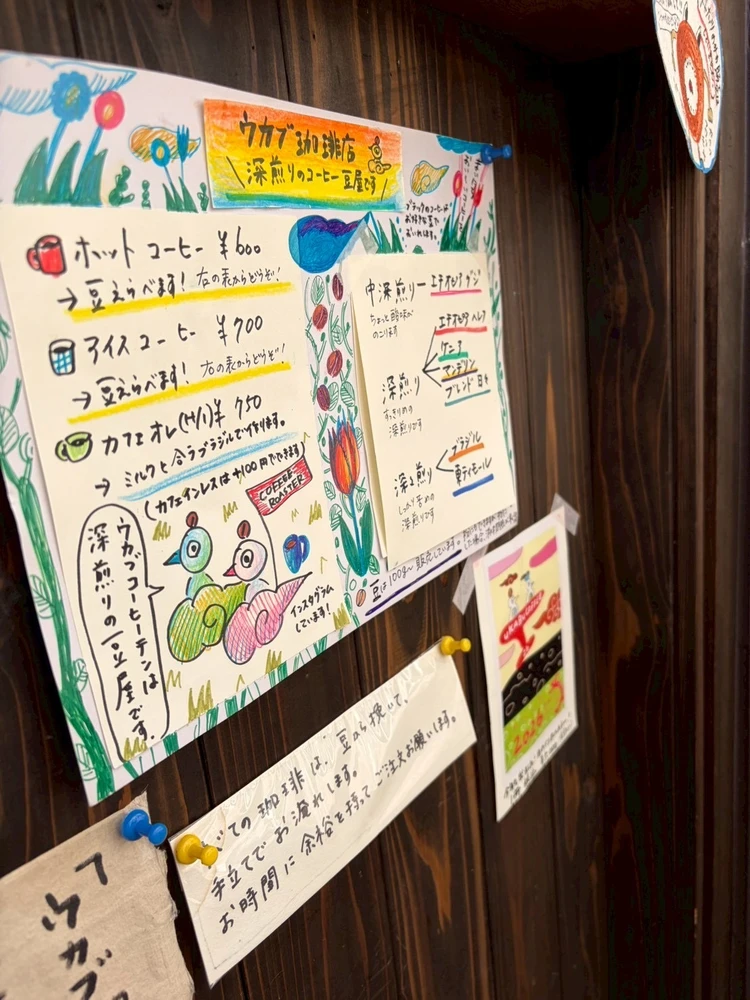 ウカブ珈琲店
深煎りのコーヒー豆屋です
ブラックのコーヒーは
お好きな豆で
おいれします。
ホットコーヒー ¥600
→豆えらべます! 右の表からどうぞ!
アイスコーヒー ¥700
→豆えらべます! 右の表からどうぞ!
カフェオレ(H/I)¥750
→ミルクと合うブラジルで作ります。
(カフェインレスは+100円でできます)
COFFEE
ROASTER
ウカブコーヒーテンは
深煎りの豆屋です!
インスタグラム
しています!
中深煎り ー エチオピア グジ
ちょっと酸味が
のこります
エチオピア ベレカ
ケニア
深煎り
マンデリン
ブレンド 日々
すっきりめの
深煎りです
ブラジル
深深煎り
東ティモール
しっかり苦めの
深煎りです
豆は100g〜 販売しています。
いての珈琲は、豆から挽いて、
手立てでお淹れします。
お時間に余裕を持ってご注文お願いします。
2026
ウカブ